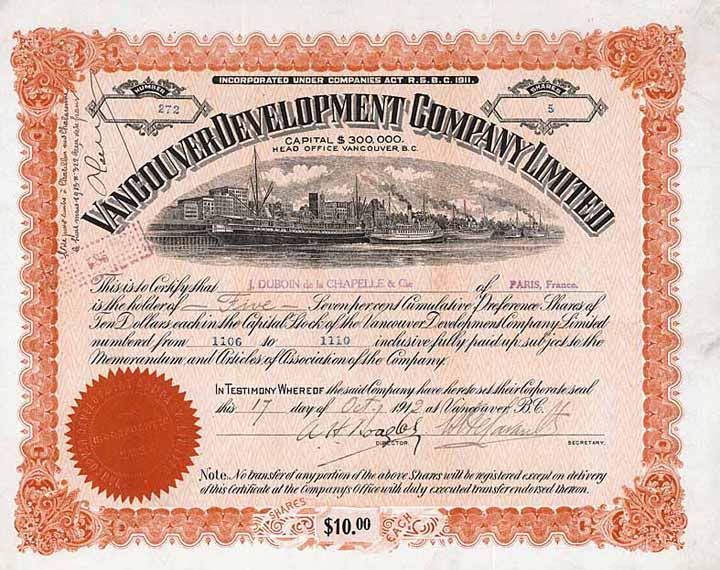 INCORPORATED UNDER COMPANIES ACT R.S.B.C. 1911.
NUMBER
272
SHARES
5
VANCOUVER DEVELOPMENT COMPANY LIMITED
CAPITAL $300,000.
HEAD OFFICE VANCOUVER, B.C.
This is to Certify that J. DUBOIN de la CHAPELLE & Cie of PARIS, France.
is the holder of — Five — Seven per cent Cumulative Preference Shares of
Ten Dollars each in the Capital Stock of the Vancouver Development Company Limited
numbered from 1106 to 1110 inclusive fully paid up subject to the
Memorandum and Articles of Association of the Company.
IN TESTIMONY WHEREOF the said Company have hereto set their Corporate seal
this 17 day of Oct. 1912 at Vancouver, B.C.
DIRECTOR
SECRETARY.
Note. No transfer of any portion of the above Shares will be registered except on delivery
of this Certificate at the Company's Office with duly executed transfer endorsed thereon.
SHARES $10.00 EACH